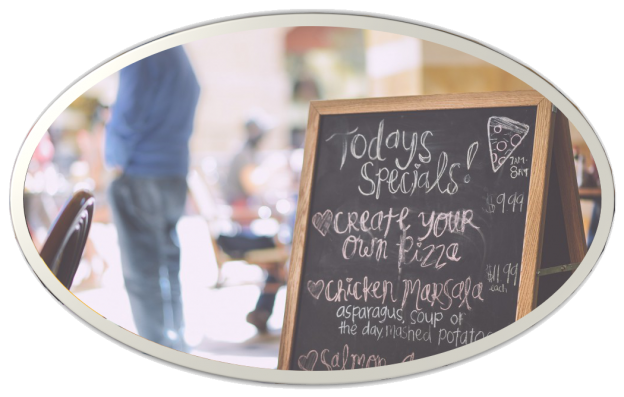 Todays
Specials!
7AM-
8PM
$9.99
♡ create your
own Pizza
♡ chicken Marsala
$11.99
each
asparagus, soup of
the day, mashed potato
♡ Salmon